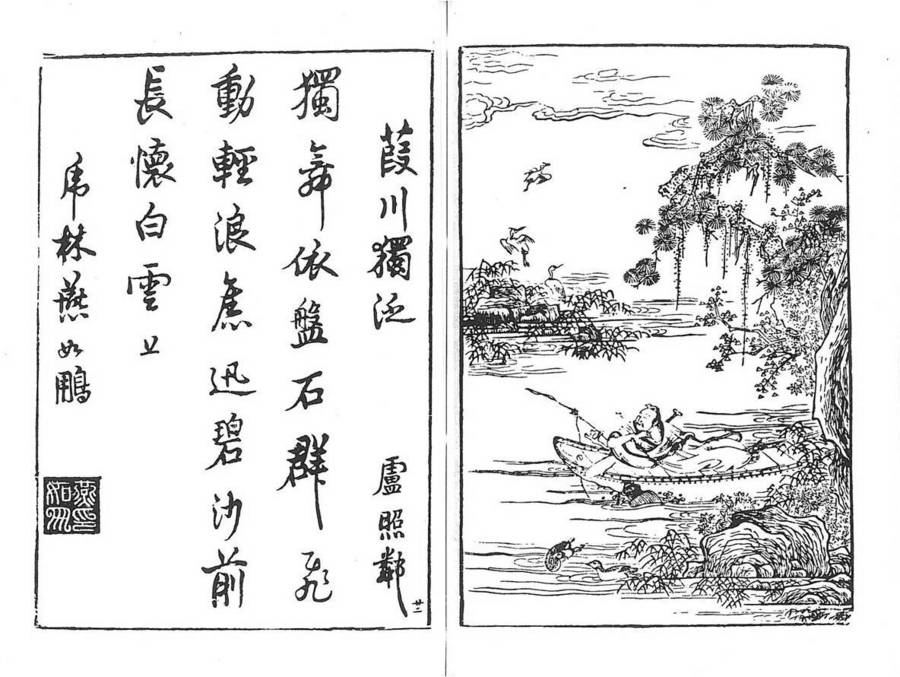 葭川獨泛　盧照鄰
獨舞依盤石群飛
動輕浪奮迅碧沙前
長懷白雲上
虎林燕如鵬